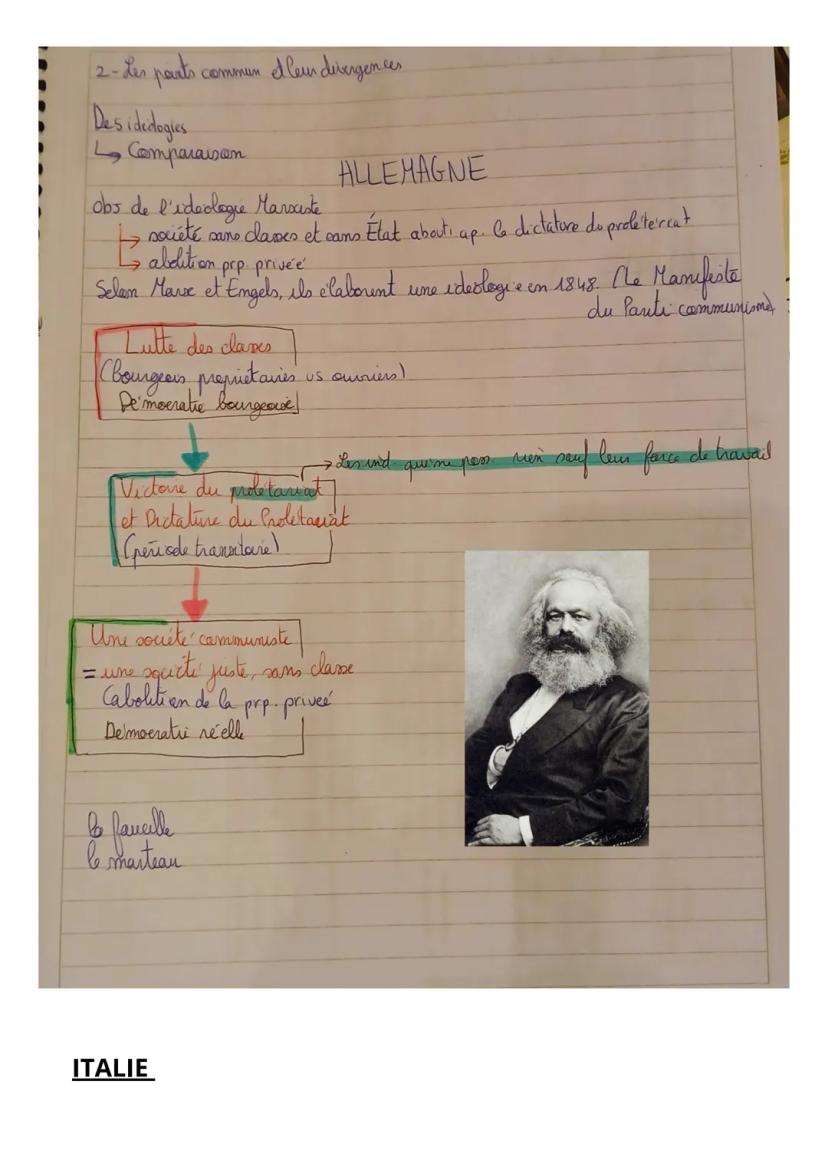 2 - Les points commun et leur divergences
Des idéologies
↳ Comparaison
ALLEMAGNE
Obj de l'idéologie Marxiste
↳ société sans classes et sans État about. ap. la dictature du proléterrat
↳ abolition prp. privée
Selon Marx et Engels, ils élaborent une idéologie en 1848. (Le Manifeste
du Parti communisme)
Lutte des classes
(bourgeois propriétaires vs ouvriers)
Démocratie bourgeoise
→ Les ind. qui ne poss. rien sauf leur force de travail
Victoire du prolétariat
et Dictature du Prolétariat
(période transitoire)
Une société communiste
= une société juste, sans classe
(abolition de la prp. privée
Démocratie réelle
la faucille
le marteau
ITALIE